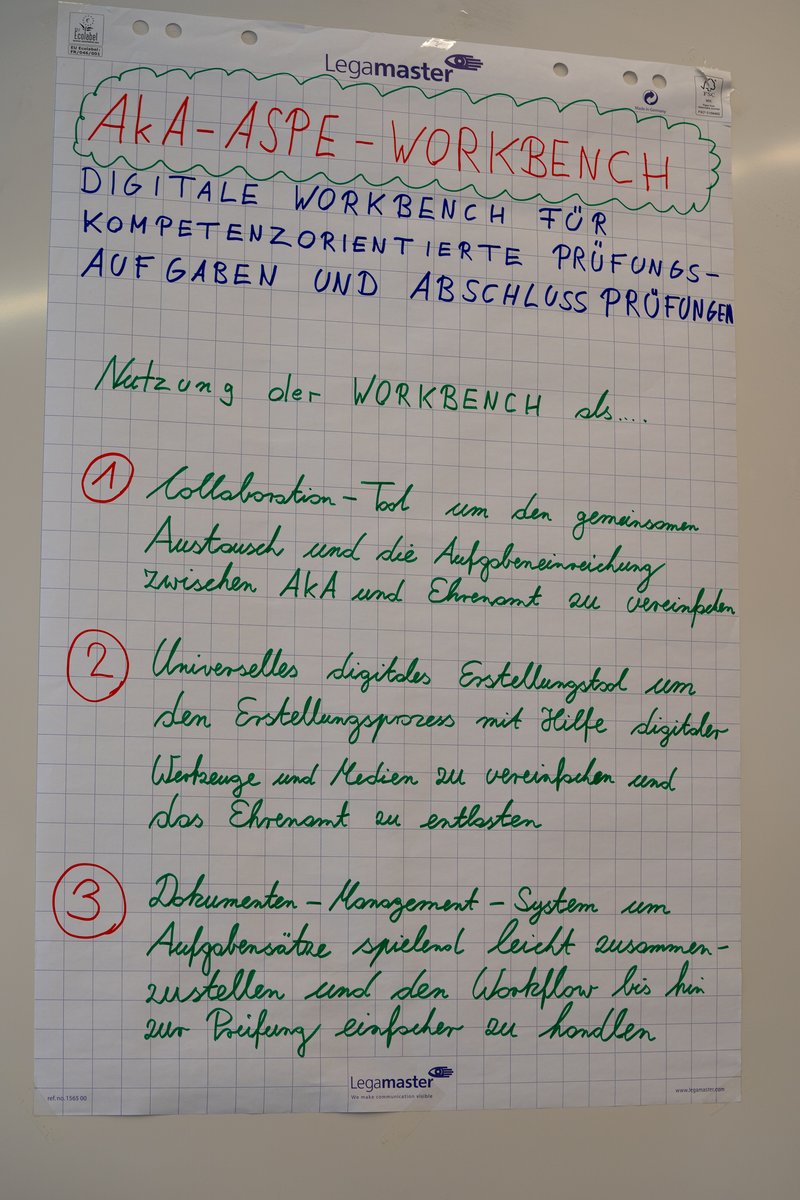 EU Ecolabel
FR/046/001
Legamaster
Made in Germany
FSC
MIX
AkA-ASPE-WORKBENCH
DIGITALE WORKBENCH FÜR
KOMPETENZORIENTIERTE PRÜFUNGS-
AUFGABEN UND ABSCHLUSSPRÜFUNGEN
Nutzung der WORKBENCH als....
1 Collaboration-Tool um den gemeinsamen
Austausch und die Aufgabeneinreichung
zwischen AkA und Ehrenamt zu vereinfachen
2 Universelles digitales Erstellungstool um
den Erstellungsprozess mit Hilfe digitaler
Werkzeuge und Medien zu vereinfachen und
das Ehrenamt zu entlasten
3 Dokumenten-Management-System um
Aufgabensätze spielend leicht zusammen-
zustellen und den Workflow bis hin
zur Prüfung einfacher zu handlen
Legamaster
We make communication visible
ref.no. 1565 00
www.legamaster.com